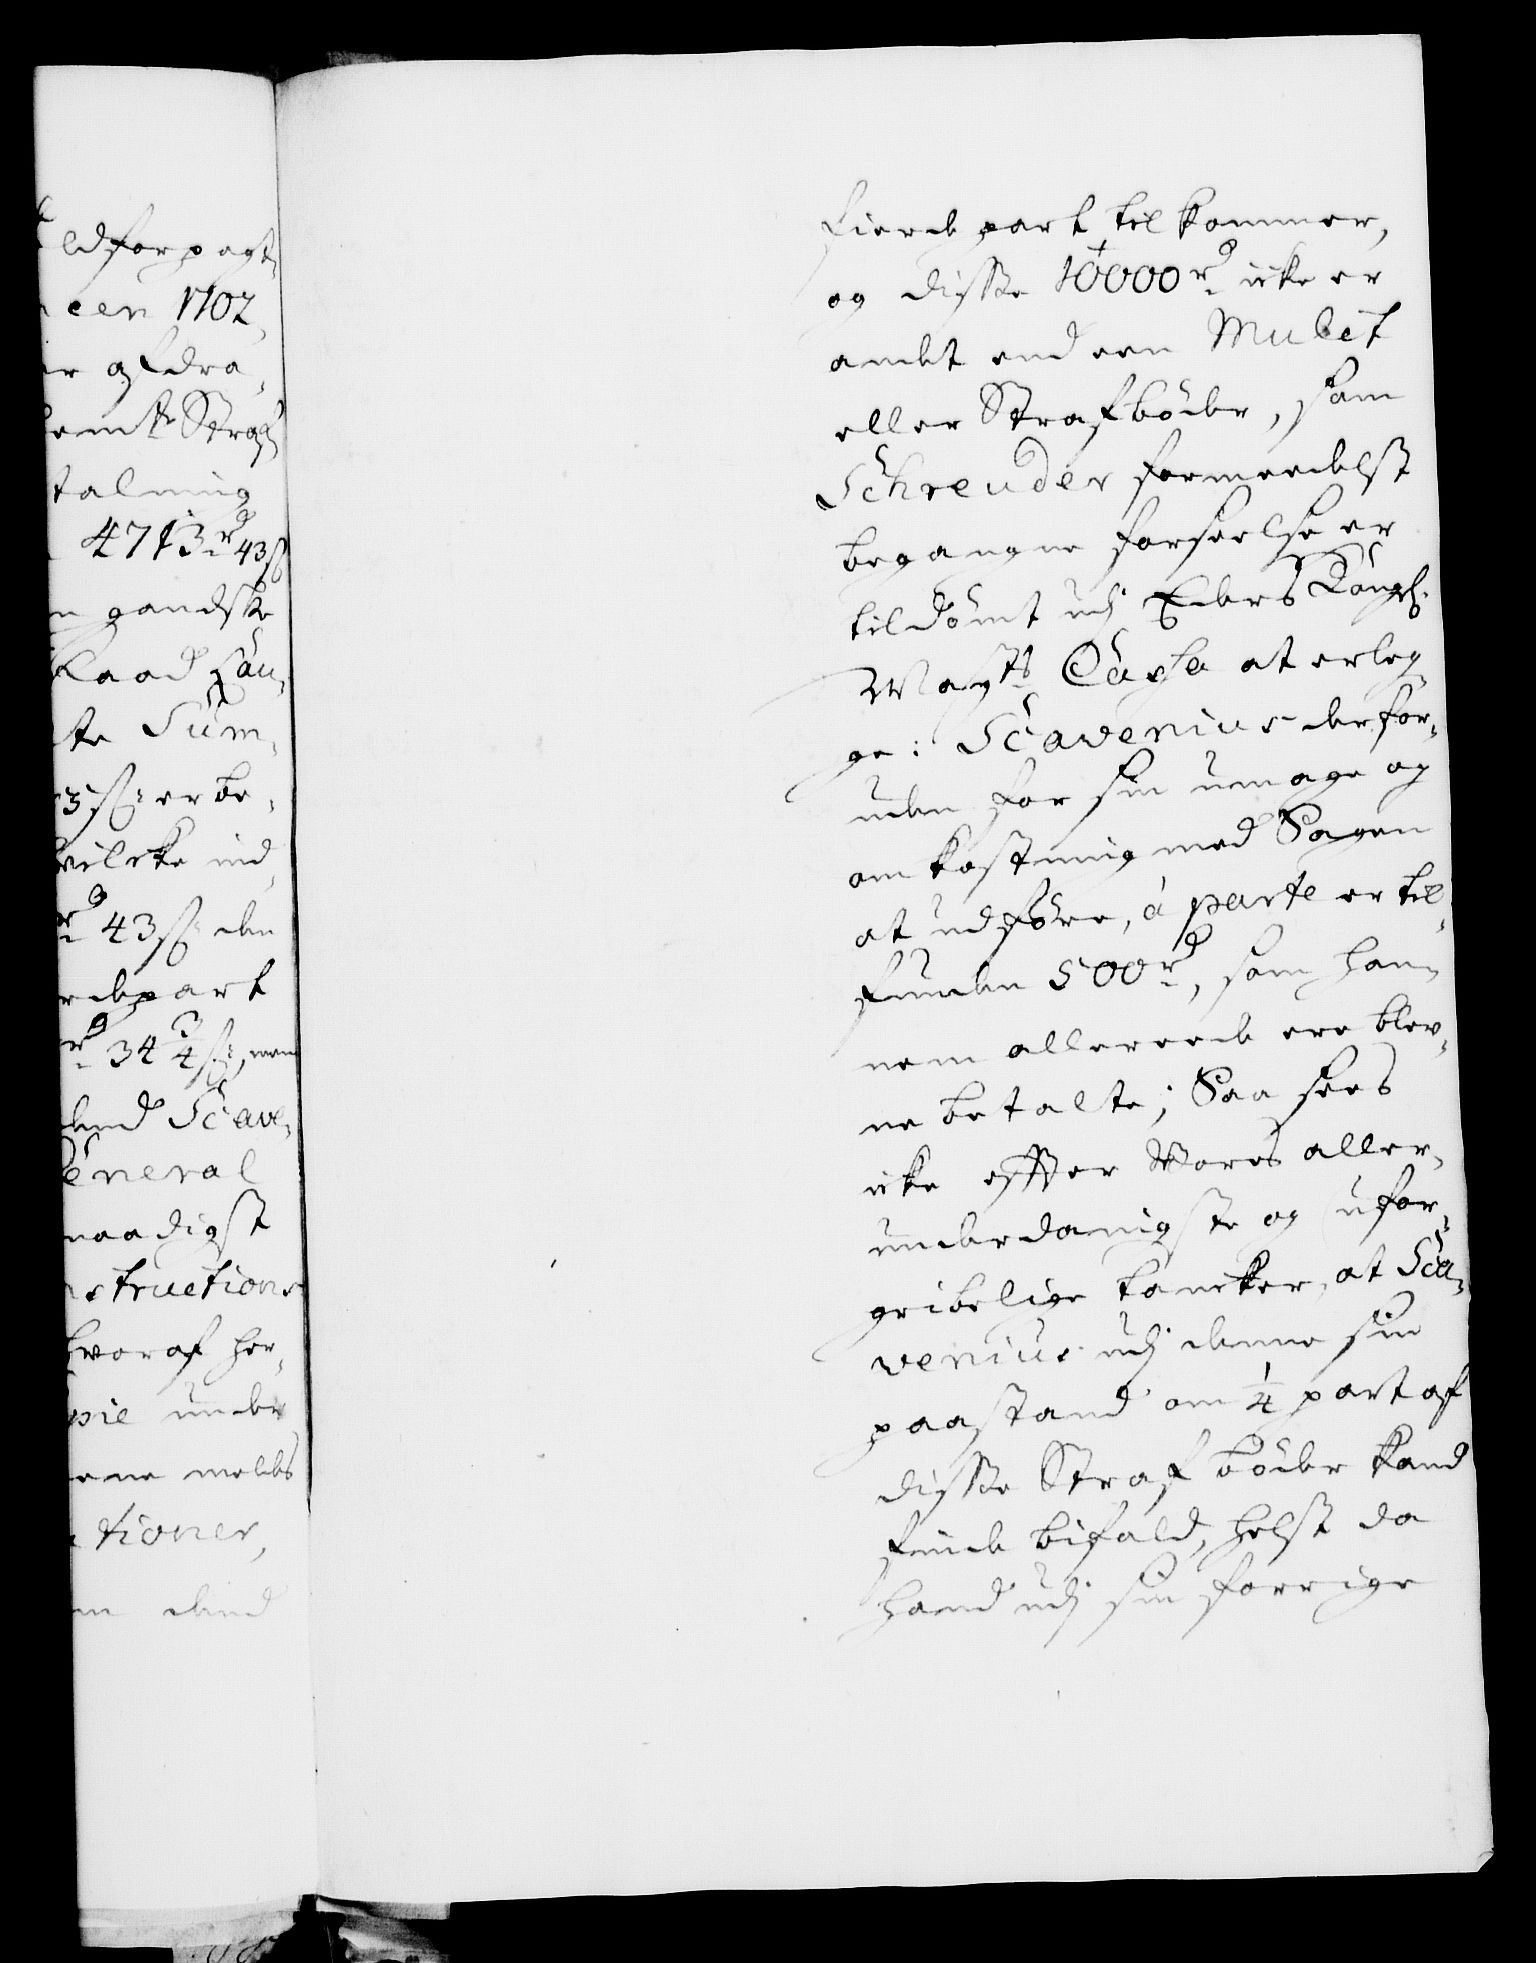 ldforpagt
cen 1702,
er afdra-
bemte Straf
talning
4713 rd 43 ß
n gandske
Raad Lau-
ste Sum-
3 ß: er be-
hvilcke ind-
rd 43 ß den
rdepart
rd 34 3/4 ß, men
dend Scave-
General
naadigst
nstructions
hvoraf her-
pie under
ene meldes
ctioner,
m dend
Fierdepart tilkommer,
og disse 10000 rd icke er
andet end een Mulct
eller Strafbøder, som
Schreuder formeedelst
begangne forseelse er
tildømt udj Eders Kongl:
Mayts Cassa at erleg-
ge: Scavenius derfor-
uden for sin umage og
omkostning med Sagen
at udføre, á parte er til-
funden 500 rd, som han-
nem allereede ere blev-
ne betalte; Saa sees
icke effter Vores aller-
underdanigste og ufor-
gribelige tancker, at Sca-
venius udj denne sin
paastand om 1/4 part af
disse Strafbøder kand
finde bifald, helst da
hand udj sin forrige